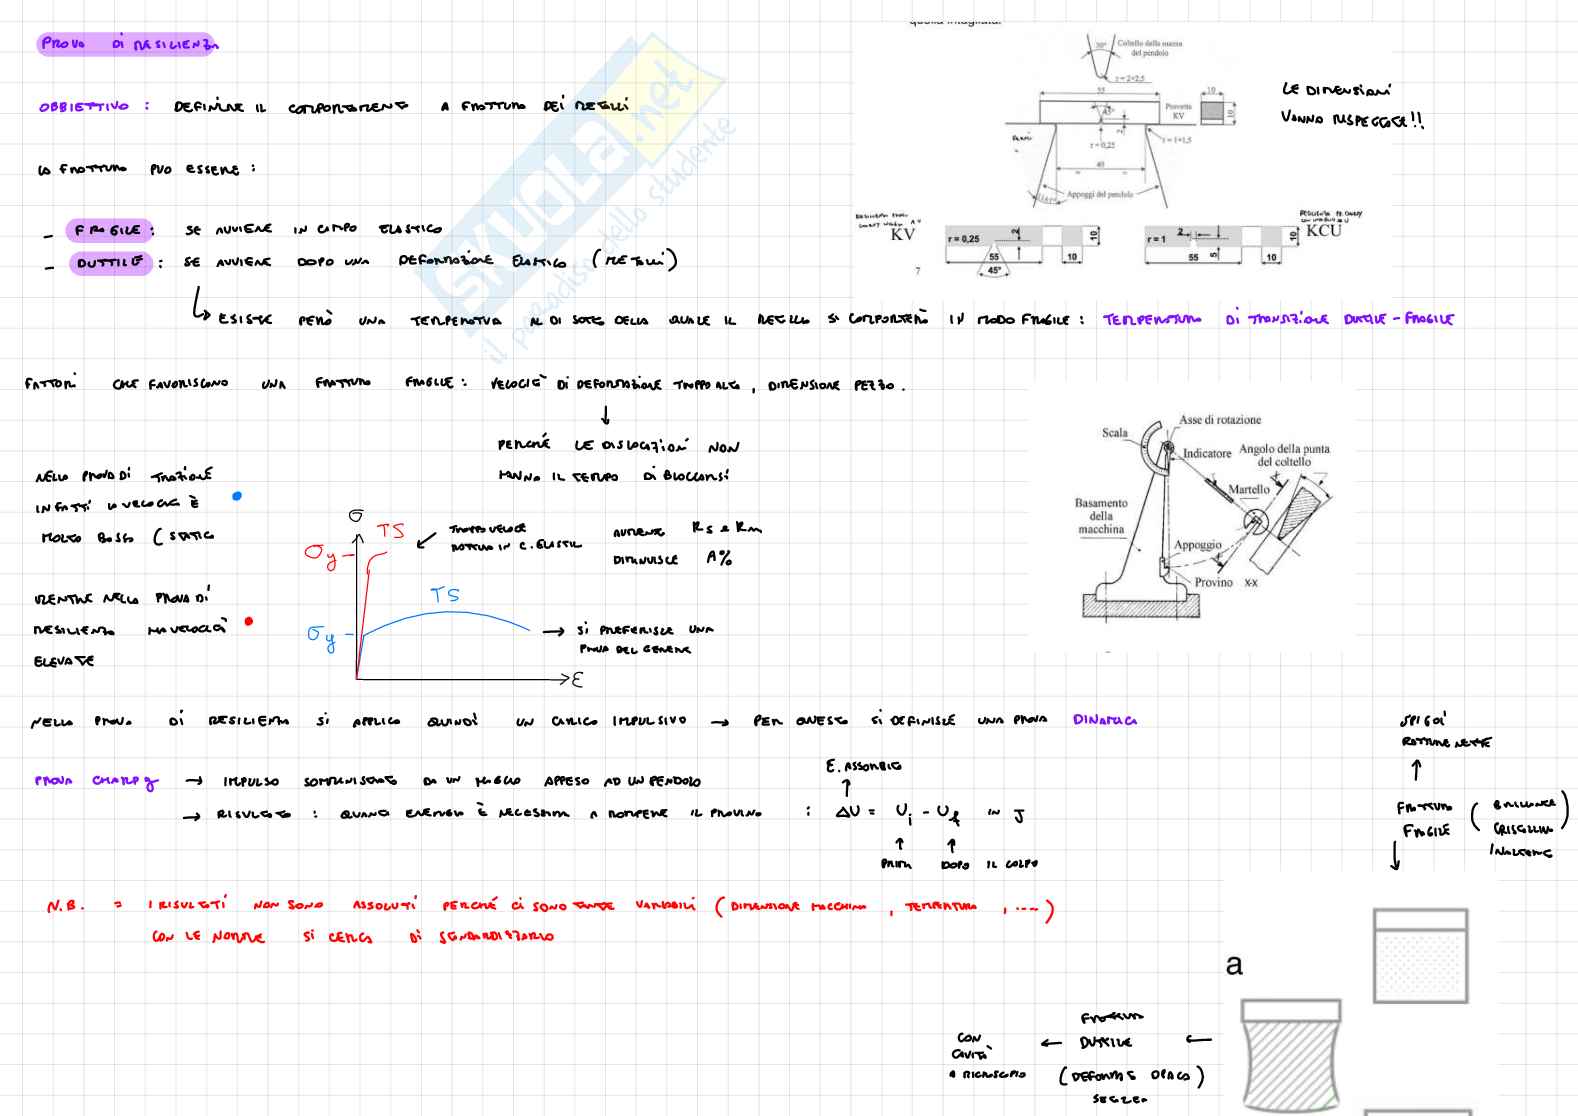 PROVA DI RESILIENZA
OBBIETTIVO : DEFINIRE IL COMPORTAMENTO A FRATTURA DEI METALLI
LA FRATTURA PUÒ ESSERE :
- FRAGILE : SE AVVIENE IN CAMPO ELASTICO
- DUTTILE : SE AVVIENE DOPO UNA DEFORMAZIONE ELASTICA (METALLI)
ESISTE PERÒ UNA TEMPERATURA AL DI SOTTO DELLA QUALE IL METALLO SI COMPORTERÀ IN MODO FRAGILE : TEMPERATURA DI TRANSIZIONE DUTTILE - FRAGILE
FATTORI CHE FAVORISCONO UNA FRATTURA FRAGILE : VELOCITÀ DI DEFORMAZIONE TROPPO ALTA , DIMENSIONE PEZZO .
PERCHÉ LE DISLOCAZIONI NON
HANNO IL TEMPO DI BLOCCARSI
NELLA PROVA DI TRAZIONE
INFATTI LA VELOCITÀ È
MOLTO BASSA (STATICA
MENTRE NELLA PROVA DI
RESILIENZA HA VELOCITÀ
ELEVATE
σ
TS
σy
TROPPO VELOCE
ROTTURA IN C. ELASTIC
AUMENTA Rs e Rm
DIMINUISCE A%
TS
σy
SI PREFERISCE UNA
PROVA DEL GENERE
ε
NELLA PROVA DI RESILIENZA SI APPLICA QUINDI UN CARICO IMPULSIVO → PER QUESTO SI DEFINISCE UNA PROVA DINAMICA
PROVA CHARPY → IMPULSO SOMMINISTRATO DA UN MAGLIO APPESO AD UN PENDOLO
E. ASSORBITA
→ RISULTATO : QUANTA ENERGIA È NECESSARIA A ROMPERE IL PROVINO : ΔU = Ui - Uf IN J
PRIMA DOPO IL COLPO
N.B. = I RISULTATI NON SONO ASSOLUTI PERCHÉ CI SONO TANTE VARIABILI (DIMENSIONE MACCHINA , TEMPERATURA , ....)
CON LE NORME SI CERCA DI STANDARDIZZARLO
quella intagliata.
30°
Coltello della mazza
del pendolo
r = 2÷2,5
55
10
45°
Provetta
KV
10
2
r = 0,25
r = 1÷1,5
40
Appoggi del pendolo
11±1°
LE DIMENSIONI
VANNO RISPETTATE!!
KV
r = 0,25
2
10
55
10
45°
7
RESILIENZA PER CHARPY
CON INTAGLIO A U
KCU
r = 1
2
5
10
55
10
Scala
Asse di rotazione
Indicatore
Angolo della punta
del coltello
Martello
Basamento
della
macchina
Appoggio
Provino
X-X
SPIGOLI
ROTTURE NETTE
FRATTURA
FRAGILE
(BRILLANTE
CRISTALLINA
a
FRATTURA
DUTTILE
(DEFORMATA E OPACA)
CON
CAVITÀ
A MICROSCOPIO
SKUOLA.net
il paradiso dello studente